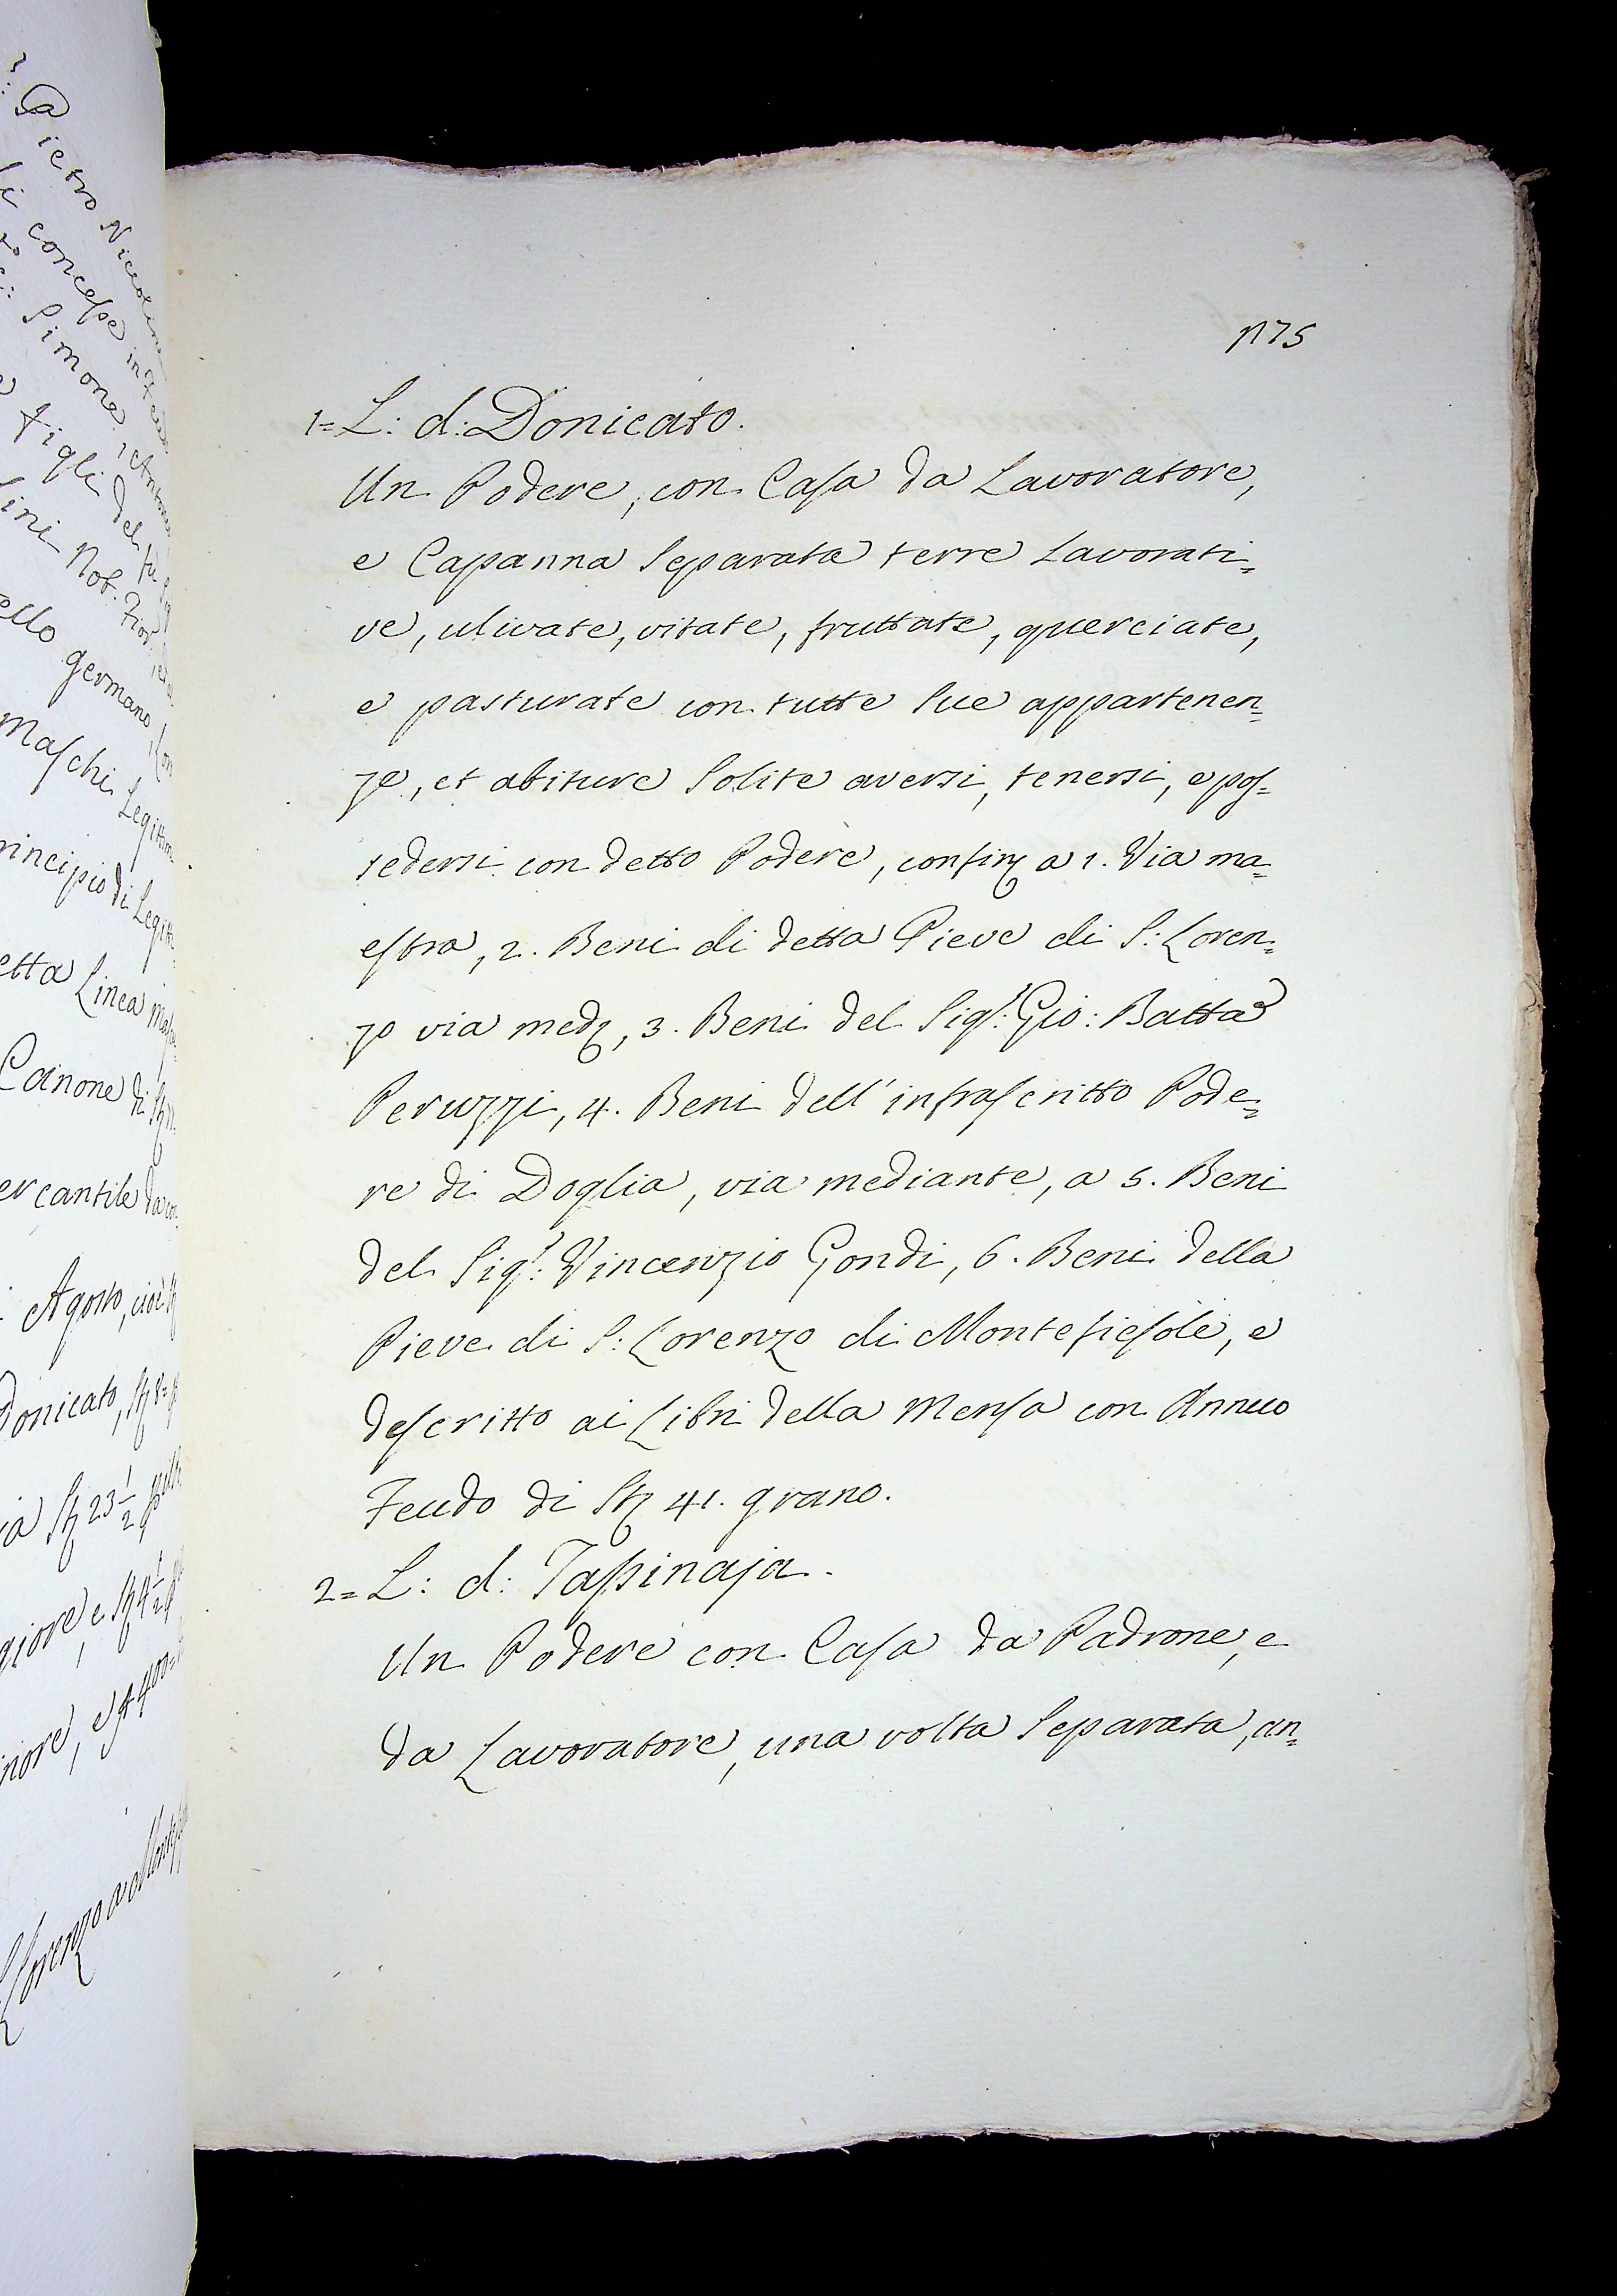 175
1= L: d: Donicato.
Un Podere, con Casa da Lavoratore,
e Capanna Separata terre Lavorati=
ve, ulivate, vitate, fruttate, querciate,
e pasturate con tutte Sue appartenen=
ze, et abiture Solite aversi, tenersi, e pos=
sedersi con detto Podere, confinȝ a 1. Via ma=
estra, 2. Beni di detta Pieve di S: Loren=
zo via medȝ, 3. Beni del Sigr: Gio: Batta
Peruzzi, 4. Beni dell' infrascritto Pode=
re di Doglia, via mediante, a 5. Beni
del Sigr: Vincenzio Gondi, 6. Beni della
Pieve di S: Lorenzo di Montefiesole, e
descritto ai Libri della Mensa con Annuo
Feudo di Stȝ 41. grano.
2= L: d: Tassinaja.
Un Podere con Casa da Padrone, e
da Lavoratore, una volta Separata, an=
Pietro
concesse in
Simone,
Figli del
Nob. Fior
germano,
Maschi
di
Linea
Canone di
Agosto, cioè
Donicato,
Stȝ 23 1/2
e Stȝ 4 1/2
Lorenzo a